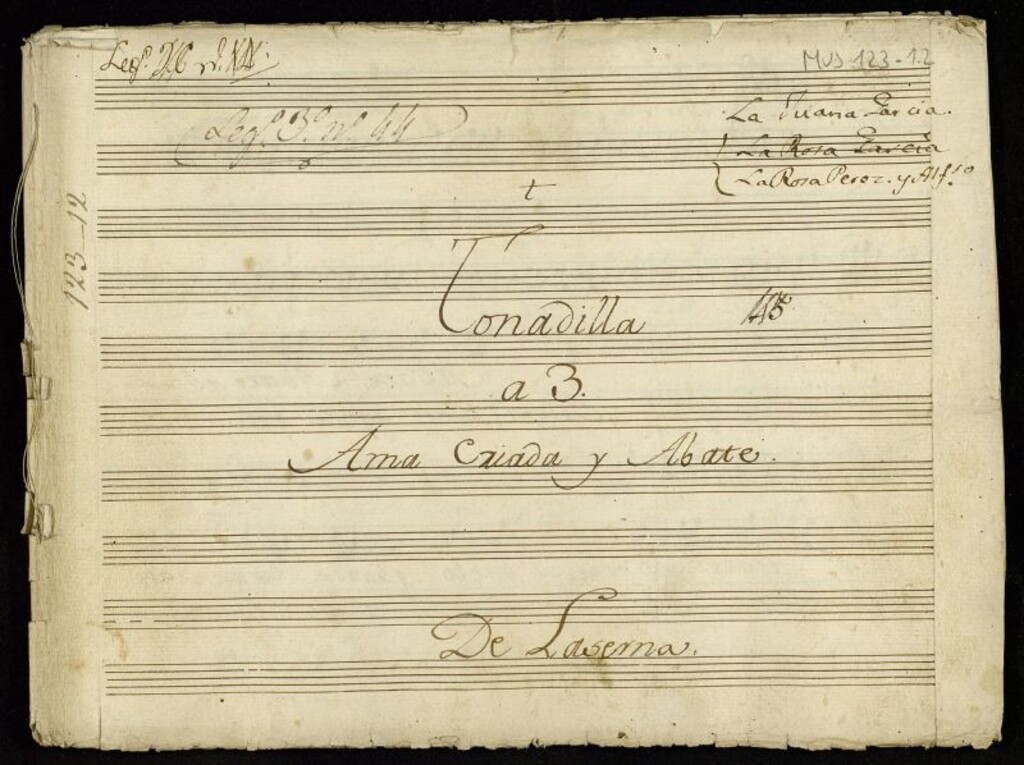 Legº
MUS 123-12
Legº. 3º nº 44
La Juana Garcia.
La Rosa Garcia
La Rosa Perez. y Alfso
t
123-12
Tonadilla
a 3.
Ama Criada y Abate.
De Laserna.